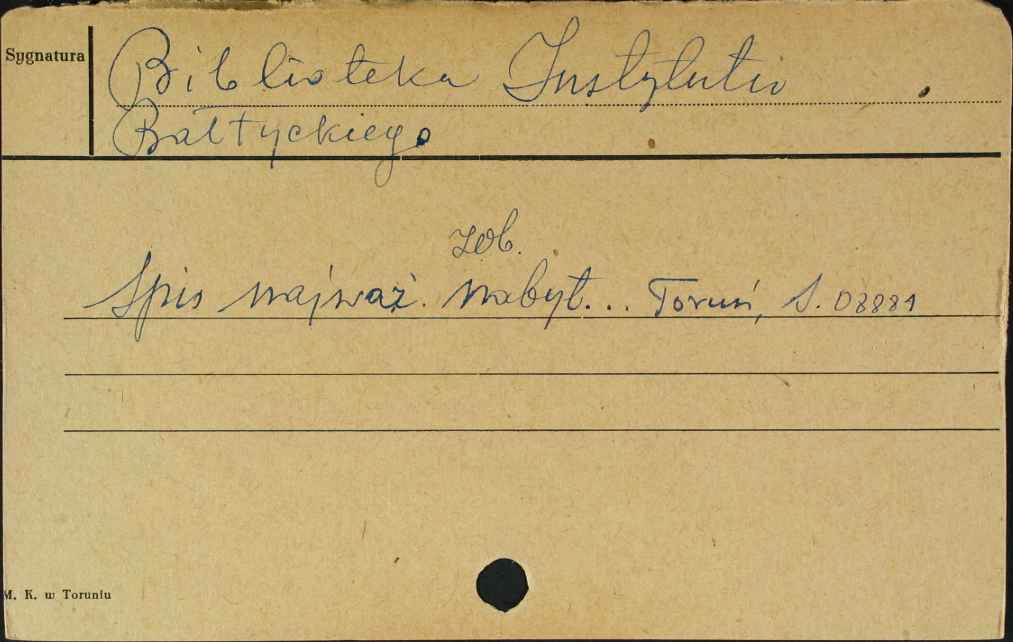 Sygnatura
Biblioteka Instytutu
Bałtyckiego
zob.
Spis najważ. nabyt... Toruń, S. 08881
M. K. w Toruniu